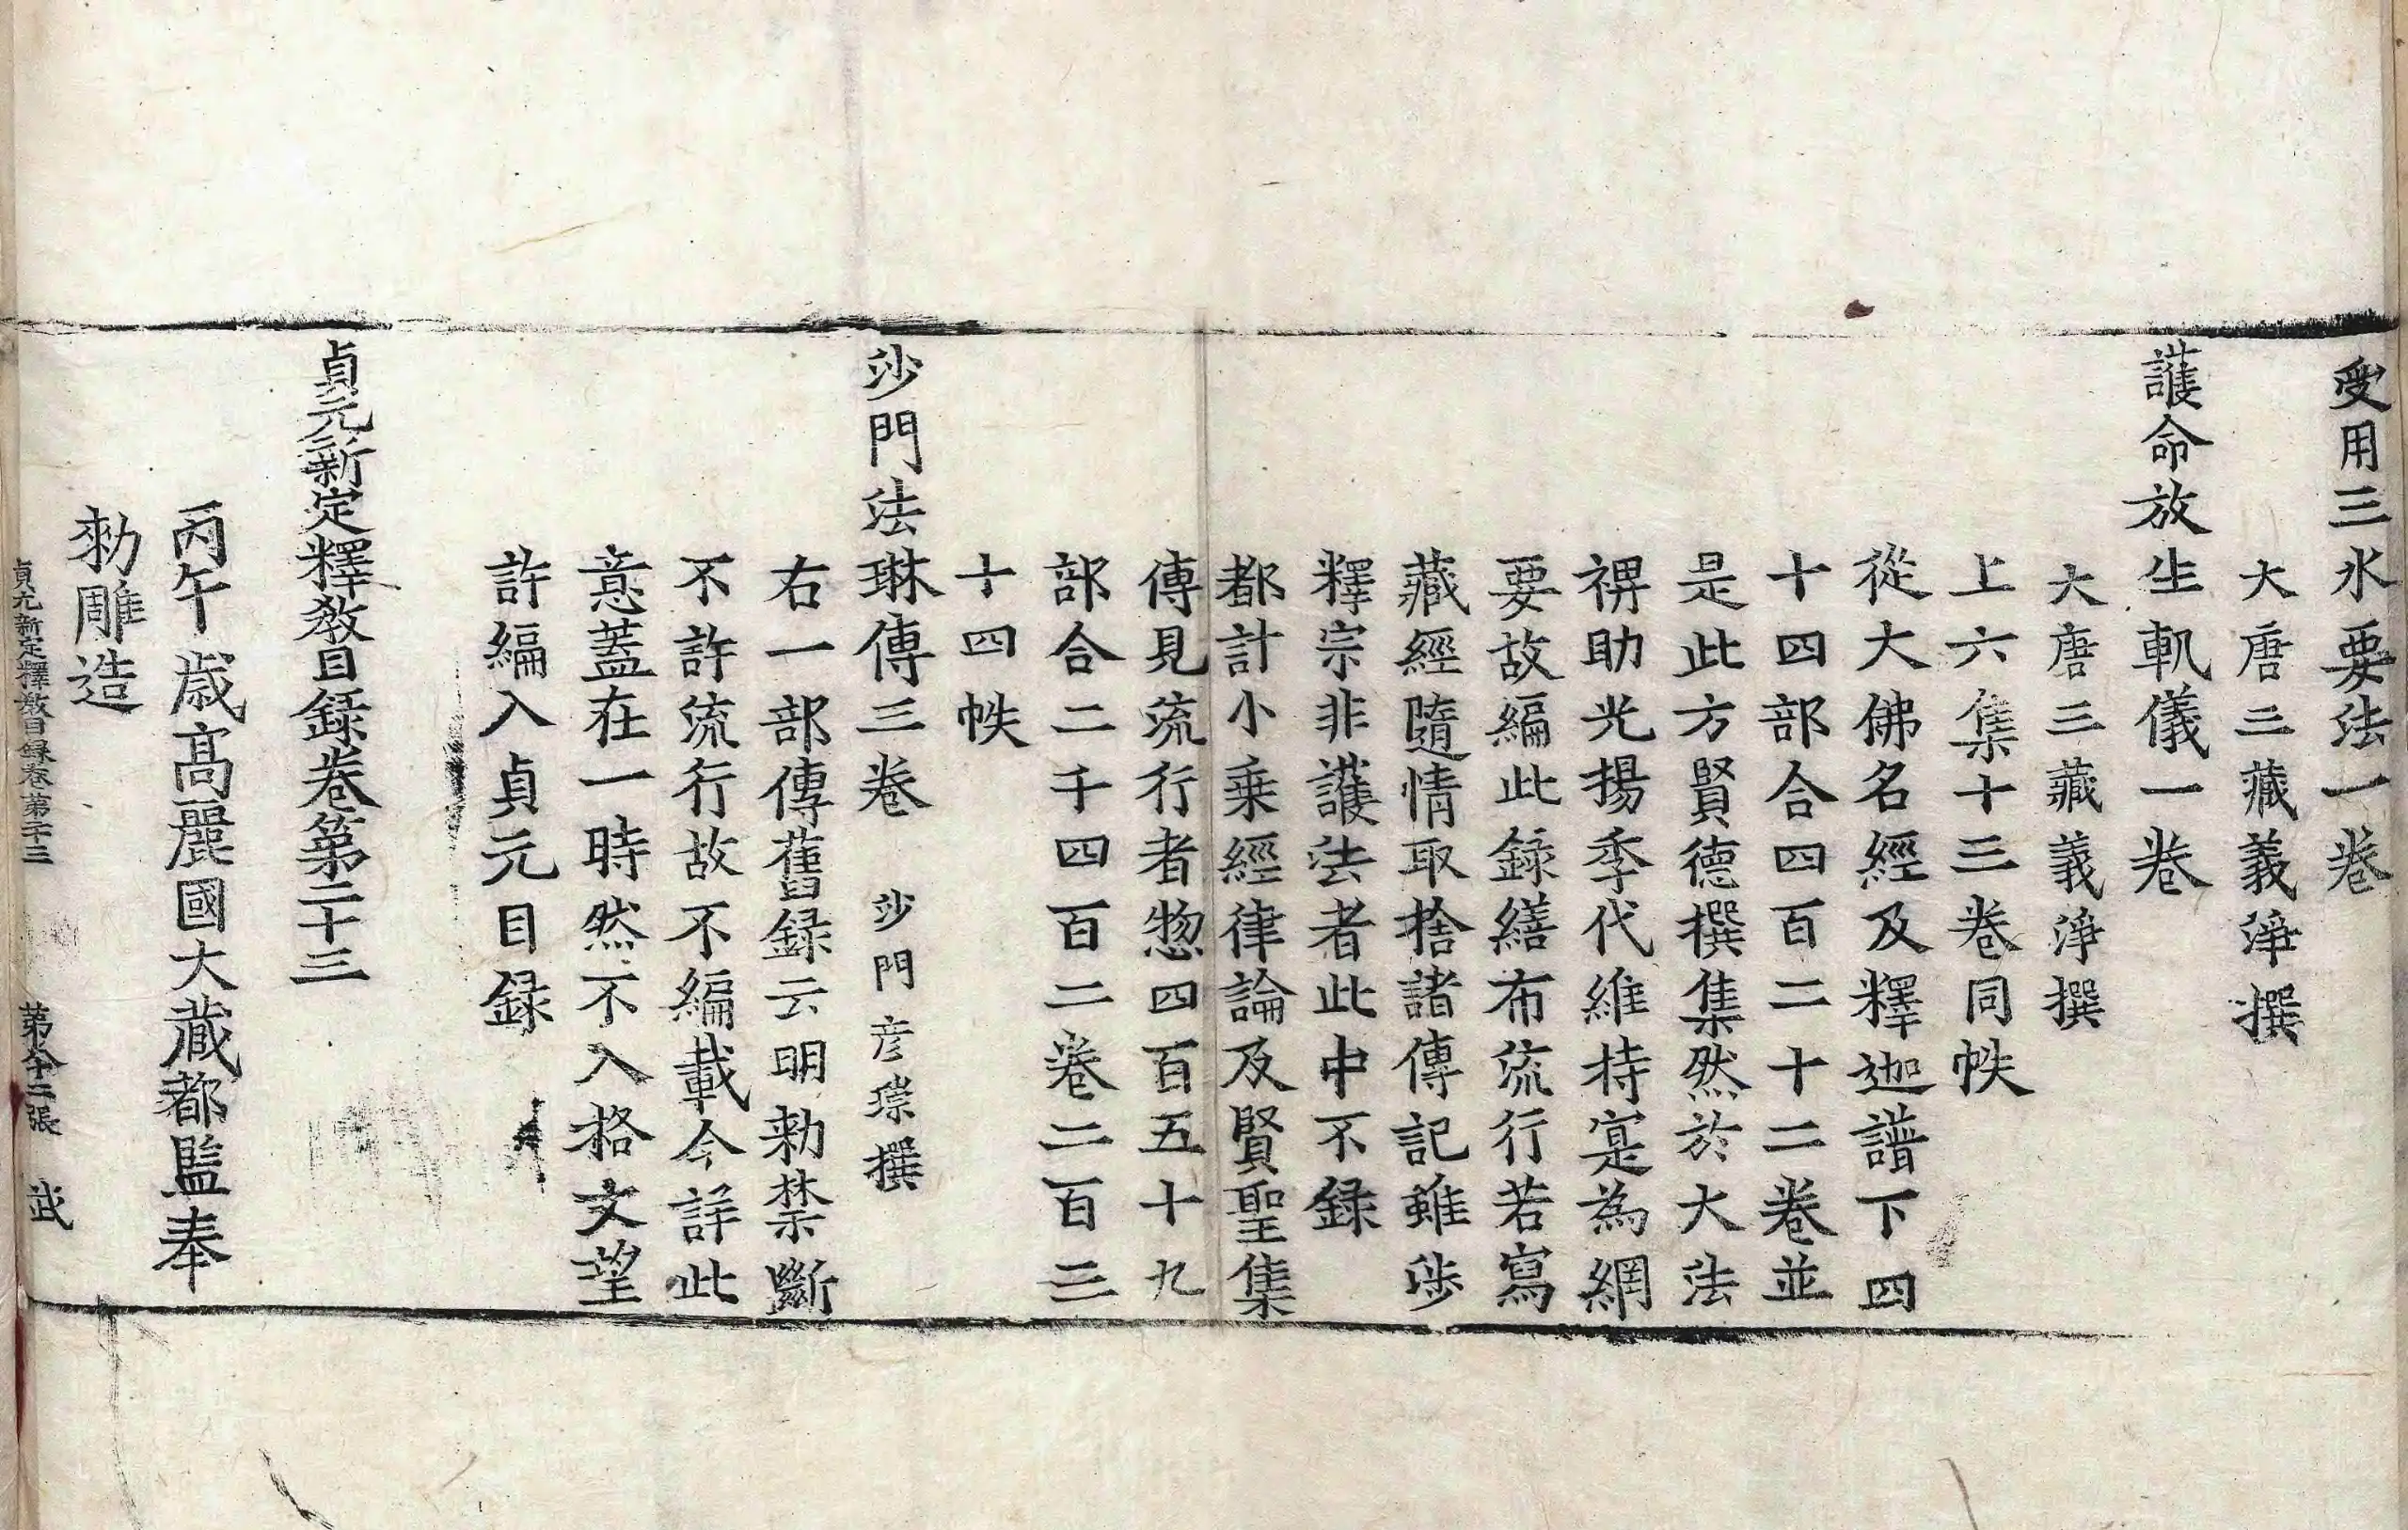 受用三水要法一卷
大唐三藏義淨撰
護命放生軌儀一卷
大唐三藏義淨撰
上六集十三卷同帙
從大佛名經及釋迦譜下四
十四部合四百二十二卷並
是此方賢德撰集然於大法
裨助光揚季代維持寔為網
要故編此録繕布流行若寫
藏經隨情取捨諸傳記雖涉
釋宗非護法者此中不録
都計小乗經律論及賢聖集
傳見流行者惣四百五十九
部合二千四百二卷二百三
十四帙
沙門法琳傳三卷 沙門彦琮撰
右一部傳舊録云明勑禁斷
不許流行故不編載今詳此
意蓋在一時然不入格文望
許編入貞元目録
貞元新定釋教目録卷第二十三
丙午歳髙麗國大藏都監奉
勑雕造
貞元新定釋教目録卷第二十三 第六十二張 武